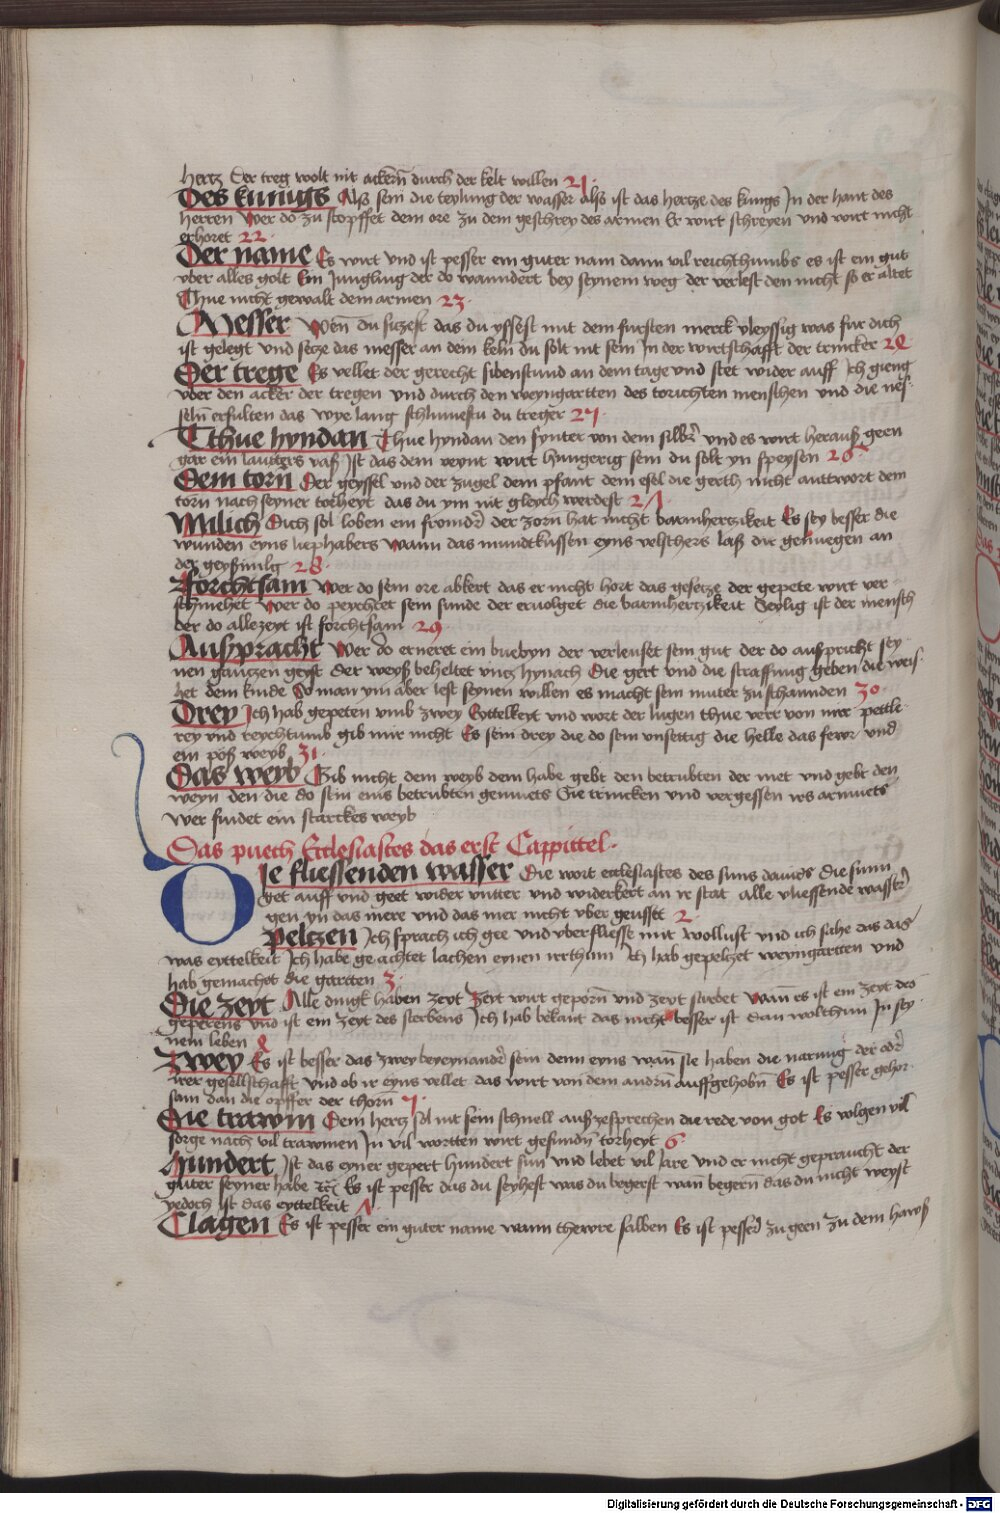 hertz Der treg wolt nit ackern̄ durch der kelt willen 21.
Des kunigs Alß sein die teylung der wasser also ist das hertze des kungs In der hant des
herren Wer do zu stopffet dem ore zu dem geschrey des armen Er wirt schreyen vnd wirt nicht
erhoret 22.
Der name Es wirt vnd ist pesser ein guter nam dann vil reichthumbs es ist ein gut
vber alles golt Ein Jungling der do wanndert bey seynem weg der verlest den nicht so er altet
Thue nicht gewalt dem armen 23.
Messer Wen̄ du sitzest das du yssest mit dem fursten merck vleyssig was fur dich
ist gelegt vnd setze das messer an dein keln du solt nit sein In der wirtschafft der trincker 24
Der trege Es vellet der gerecht sibenstund an dem tage vnd stet wider auff Ich gieng
vber den acker der tregen vnd durch den weyngartten des torichten menschen vnd die nes
seln̄ erfulten das wye lang schlummestu du treger 25.
Thue hyndan Thue hyndan den synter von dem silber vnd es wirt herauß geen
gar ein lautters vaß Ist das dein veynt wirt hungerig sein du solt yn speysen 26
Dem torn̄ Der geyssel vnd der zugel dem pfant dem esel die gerth nicht anttwort dem
torn̄ nach seyner torheyt das du ym nit gleych werdest 27.
Milich Dich sol loben ein fromder der zorn hat nicht barmhertzikeit Es sey besser die
wunden eyns liephabers Wann das mundtkussen eyns velschers laß dir genuegen an
der geyßmilg 28.
Forchtsam Wer do sein ore abkert das er nicht hort das gesetze der gepete wirt ver-
schmehet Wer do peychtet sein sunde der ervolget die barmhertzikeit Seylig ist der mensch
der do allezeyt ist forchtsam 29.
Ausspracht Wer do erneret ein buebyn der verleuset sein gut der do außspricht sey
nen gantzen geyst der weyß beheltet vntz hynach Die gert vnd die straffung geben die weis
het dem kinde So man ym aber lest seynen willen es macht sein muter zu schannden 30.
Drey Ich hab gepeten vmb zwey Eyttelkeyt vnd wort der lugen thue verr von mir pettle-
rey vnd reychtumb gib mir nicht Es sein drey die do sein vnsettig die helle das fewr vnd
ein poß weyb 31.
Das weyb Gib nicht dem weyb dein habe gebt den betrubten der met vnd gebt den
weyn den die do sein eins betrubten gemuets Sie trincken vnd vergessen irs armuets
Wer findet ein starckes weyb
Das puech Ecclesiastes das erst Cappittel.
Die fliessenden wasser Die wort ecclesiastes des suns dauids Die sunn
get auff vnd geet wider vntter vnd widerkert an ir stat alle vliessende wasser
gen yn das mere vnd das mer nicht vber geusset 2
Peltzen Ich sprach ich gee vnd vberfliesse mit wollust vnd ich sahe das das
was eyttelkeit Ich habe geachtet lachen eynen irrthum Ich hab gepeltzet weyngartten vnd
hab gemachet die gartten 3.
Die zeyt Alle dingk haben zeyt Zeyt wirt geporn̄ vnd zeyt stirbet Wan̄ es ist ein zeyt des
geperens vnd ist ein zeyt des sterbens Ich hab bekant das nicht besser ist dan wolthun In sey
nem leben 4
Zwey Es ist besser das zwey beyeynander sein denn eyns wan̄ sie haben die narung der oder
irer gesellschafft vnd ob ir eyns vellet das wirt von dem andern̄ auffgehobn̄ Es ist pesser gehor-
sam dan die opffer der thorn̄ 5.
Die trawm Dein hertz sol nit sein schnell auß zesprechen die rede von got Es volgen vil
sorge nach vil trawmen In vil wortten wirt gefunden torheyt 6
Hundert Ist das eyner gepert hundert sun vnd lebet vil Jare vnd er nicht gepraucht der
guter seyner habe etc̄ Es ist pesser das du seyhest was du begerst wan̄ begern̄ das du nicht weyst
yedoch ist das eyttelkeit 7.
Clagen Es ist pesser ein guter name wann thewre salben Es ist pesser zu geen zu dem hawß
Digitalisierung gefördert durch die Deutsche Forschungsgemeinschaft - DFG